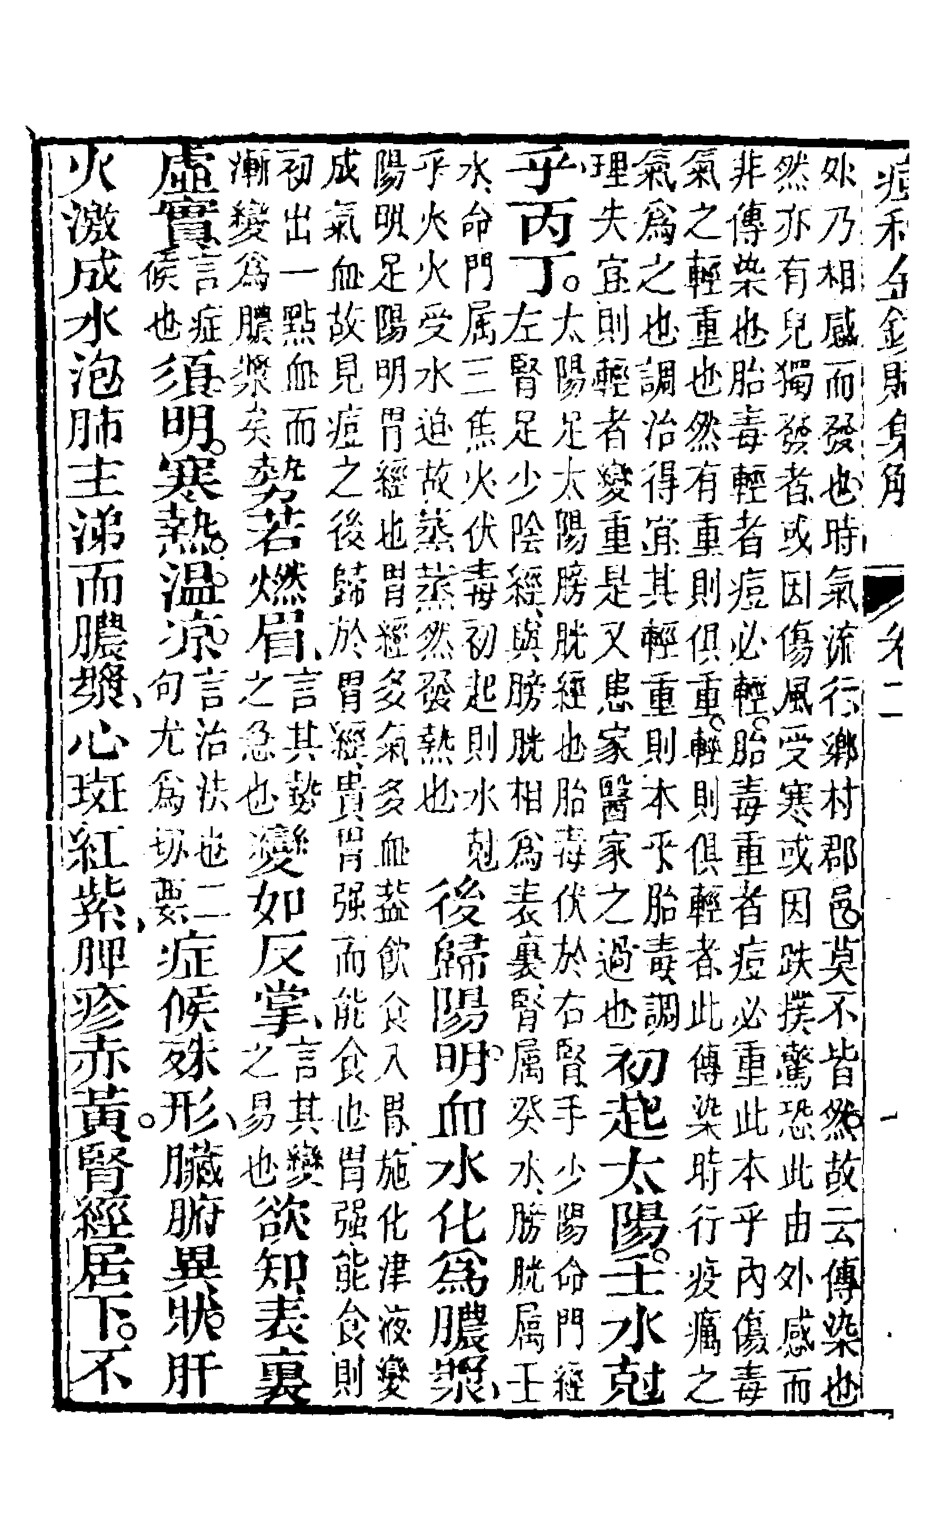 痘科金鏡賦集解 卷二 一
外乃相感而發也時氣流行鄉村郡邑莫不皆然故云傳染也
然亦有兒獨發者或因傷風受寒或因跌撲驚恐此由外感而
非傳染也胎毒輕者痘必輕胎毒重者痘必重此本乎內傷毒
氣之輕重也然有重則俱重輕則俱輕者此傳染時行疫癘之
氣爲之也調治得宜其輕重則本乎胎毒調
理失宜則輕者變重是又患家醫家之過也
初起太陽。壬水尅
乎丙丁。
太陽足太陽膀胱經也胎毒伏於右腎手少陽命門經
左腎足少陰經與膀胱相爲表裏腎属癸水膀胱属壬
水命門属三焦火伏毒初起則水尅
乎火火受水迫故蒸蒸然發熱也
後歸陽明。血水化爲膿漿、
陽明足陽明胃經也胃經多氣多血葢飲食入胃施化津液變
成氣血故見痘之後歸於胃經貴胃强而能食也胃强能食則
初出一點血而
漸變爲膿漿矣
勢若燃眉、
言其勢
之急也
變如反掌、
言其變
之易也
欲知表裏
虛實
言症
候也
須明。寒熱。温凉。
言治法也二
句尤爲切要
症候殊形、臟腑異狀。肝
火激成水泡肺主涕而膿漿、心斑紅紫、脾疹赤黃。腎經居下。不